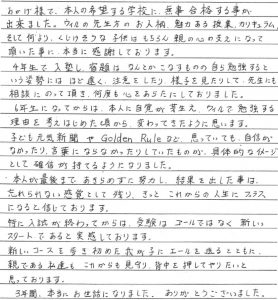 おかげ様で、本人の希望する学校に、無事合格する事が
出来ました。ウィルの先生方のお人柄、魅力ある授業、カリキュラム、
そして何より、くじけそうな子供はもちろん親の心の支えになって
頂いた事に本当に感謝しております。
今年生で入塾し、宿題はなんとかこなすものの自ら勉強すると
いう姿勢にはほど遠く、注意をしたり様子を見たりして、先生にも
相談にのって頂き、何度も心をあらたにしておりました。
6年生になってからは、本人に自覚が芽生え、ウィルで勉強する
理由を考えはじめた頃から変わってきたように思います。
子ども元気新聞やGolden Ruleなど、思っていても、自信が
なかったり、言葉にならなかったりしていたものが、具体的なイメージ
として確信が持てるようになりました。
本人が最後まであきらめずに努力し、結果を出した事は、
忘れられない感覚として残り、きっとこれからの人生にプラス
になると信じております。
特に入試が終わってからは、受験はゴールではなく新しい
スタートであると実感しております。
新しいコースを歩き初めた我が子にエールを送るとともに、
親である私達もこれからも見守り、背中を押してやりたいと
思っております。
3年間、本当にお世話になりました。ありがとうございました。